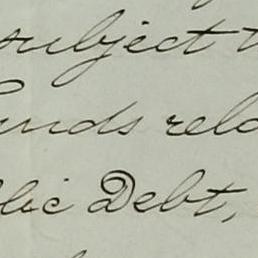 subject t
unds rela
blic Debt,